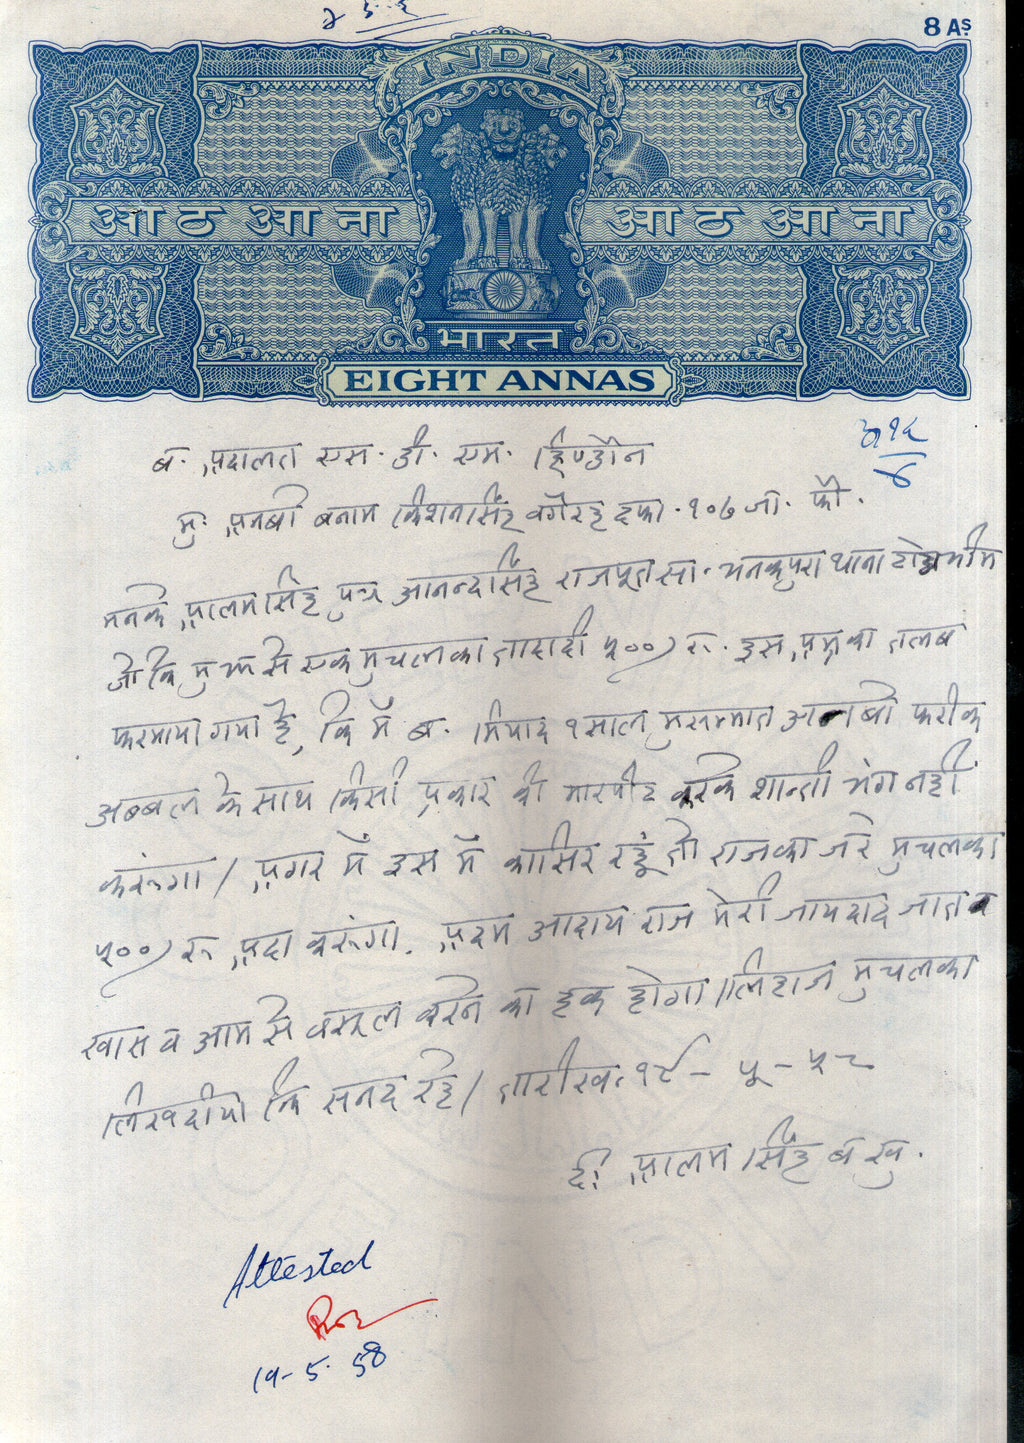 8 AS.
INDIA
आठ आना आठ आना
भारत
EIGHT ANNAS
ब. अदालत एस. डी. एम. हिण्डौन
मु. अनबो बनाम किशनसिंह वगैरह दफा. १०७ जा. फौ.
मनके आलमसिंह पुत्र आनन्दसिंह राजपूत सा. मनकपुरा थाना टोडाभीम
जो कि मुझ से एक मुचलका तादादी ५००) रु. इस अम्र का तलब
फरमाया गया है, कि मैं ब. मियाद १ साल मुसम्मात अनबो फरीक
अब्बल के साथ किसी प्रकार की मारपीट करके शान्ती भंग नहीं
करूंगा / अगर मैं इस में कासिर रहूं तो राज का जरे मुचलका
५००) रु अदा करूंगा. अदम आदाय राज मेरी जायदाद जात व
खास व आम से वसूल करने का हक होगा / लिहाज मुचलका
लिखदीयो कि सनद रहे / तारीख. १९ - ५ - ५८
द: आलम सिंह ब खु.
Attested
19-5-58